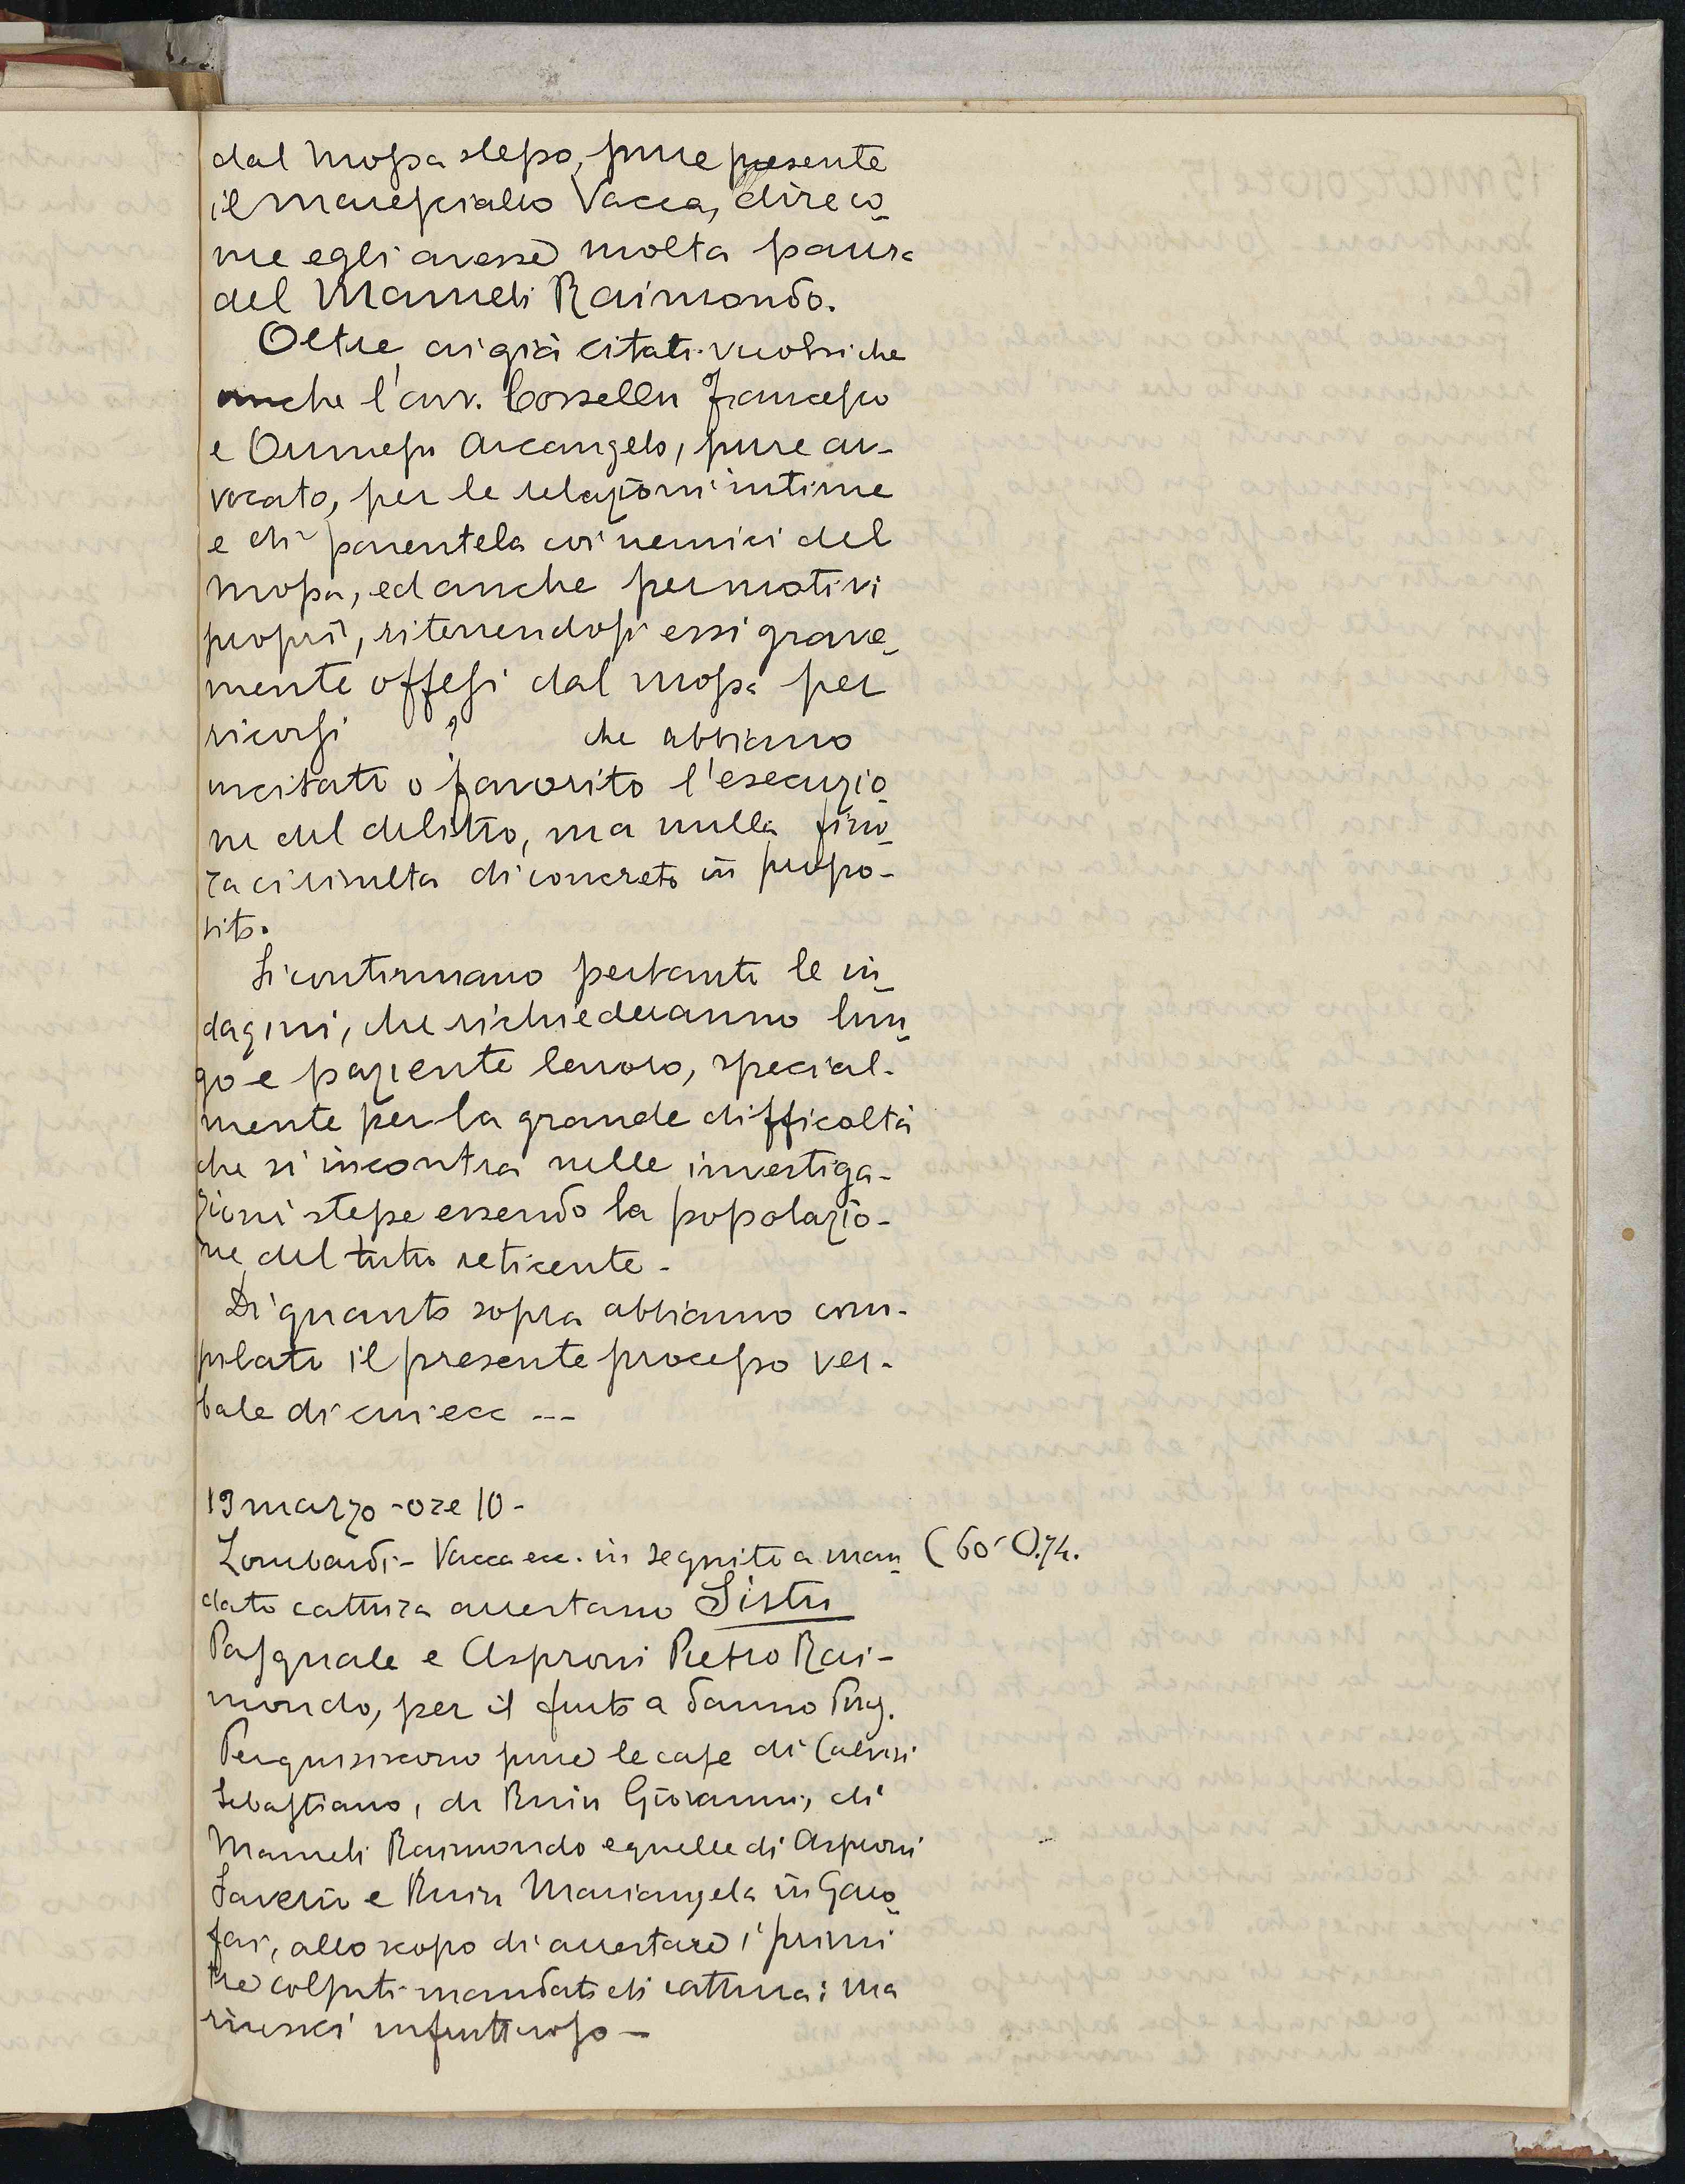 dal Mossa stesso, pure presente
il maresciallo Vacca, dire co-
me egli avesse molta paura
del Mameli Raimondo.
Oltre ai già citati vuolsi che
anche l'avv. Cossellu Francesco
e Arcangelo, pure av-
vocato, per le relazioni intime
e di parentela coi nemici del
Mossa, ed anche per motivi
proprî, ritenendosi essi grave-
mente offesi dal Mossa per
ricorsi ? che abbiano
incitato o favorito l'esecuzio-
ne del delitto, ma nulla fino-
ra ci risulta di concreto in propo-
sito.
Si continuano pertanto le in-
dagini, che richiederanno lun-
go e paziente lavoro, special-
mente per la grande difficoltà
che si incontra nelle investiga-
zioni stesse essendo la popolazio-
ne del tutto reticente.
Di quanto sopra abbiamo com-
pilato il presente processo ver-
bale di cui ecc ---
19 marzo - ore 10 -
Lombardi - Vacca ecc. in seguito a man-
dato cattura arrestano Sistu
Pasquale e Asproni Pietro Rai-
mondo, per il furto a danno
Perquisiscono pure le case di Calvisi
Sebastiano, di Ruiu Giovanni, di
Mameli Raimondo e quelle di Asproni
Saverio e Ruiu Mariangela in Gavo-
fai, allo scopo di arrestare i primi
tre colpiti mandati di cattura: ma
riuscì infruttuoso -